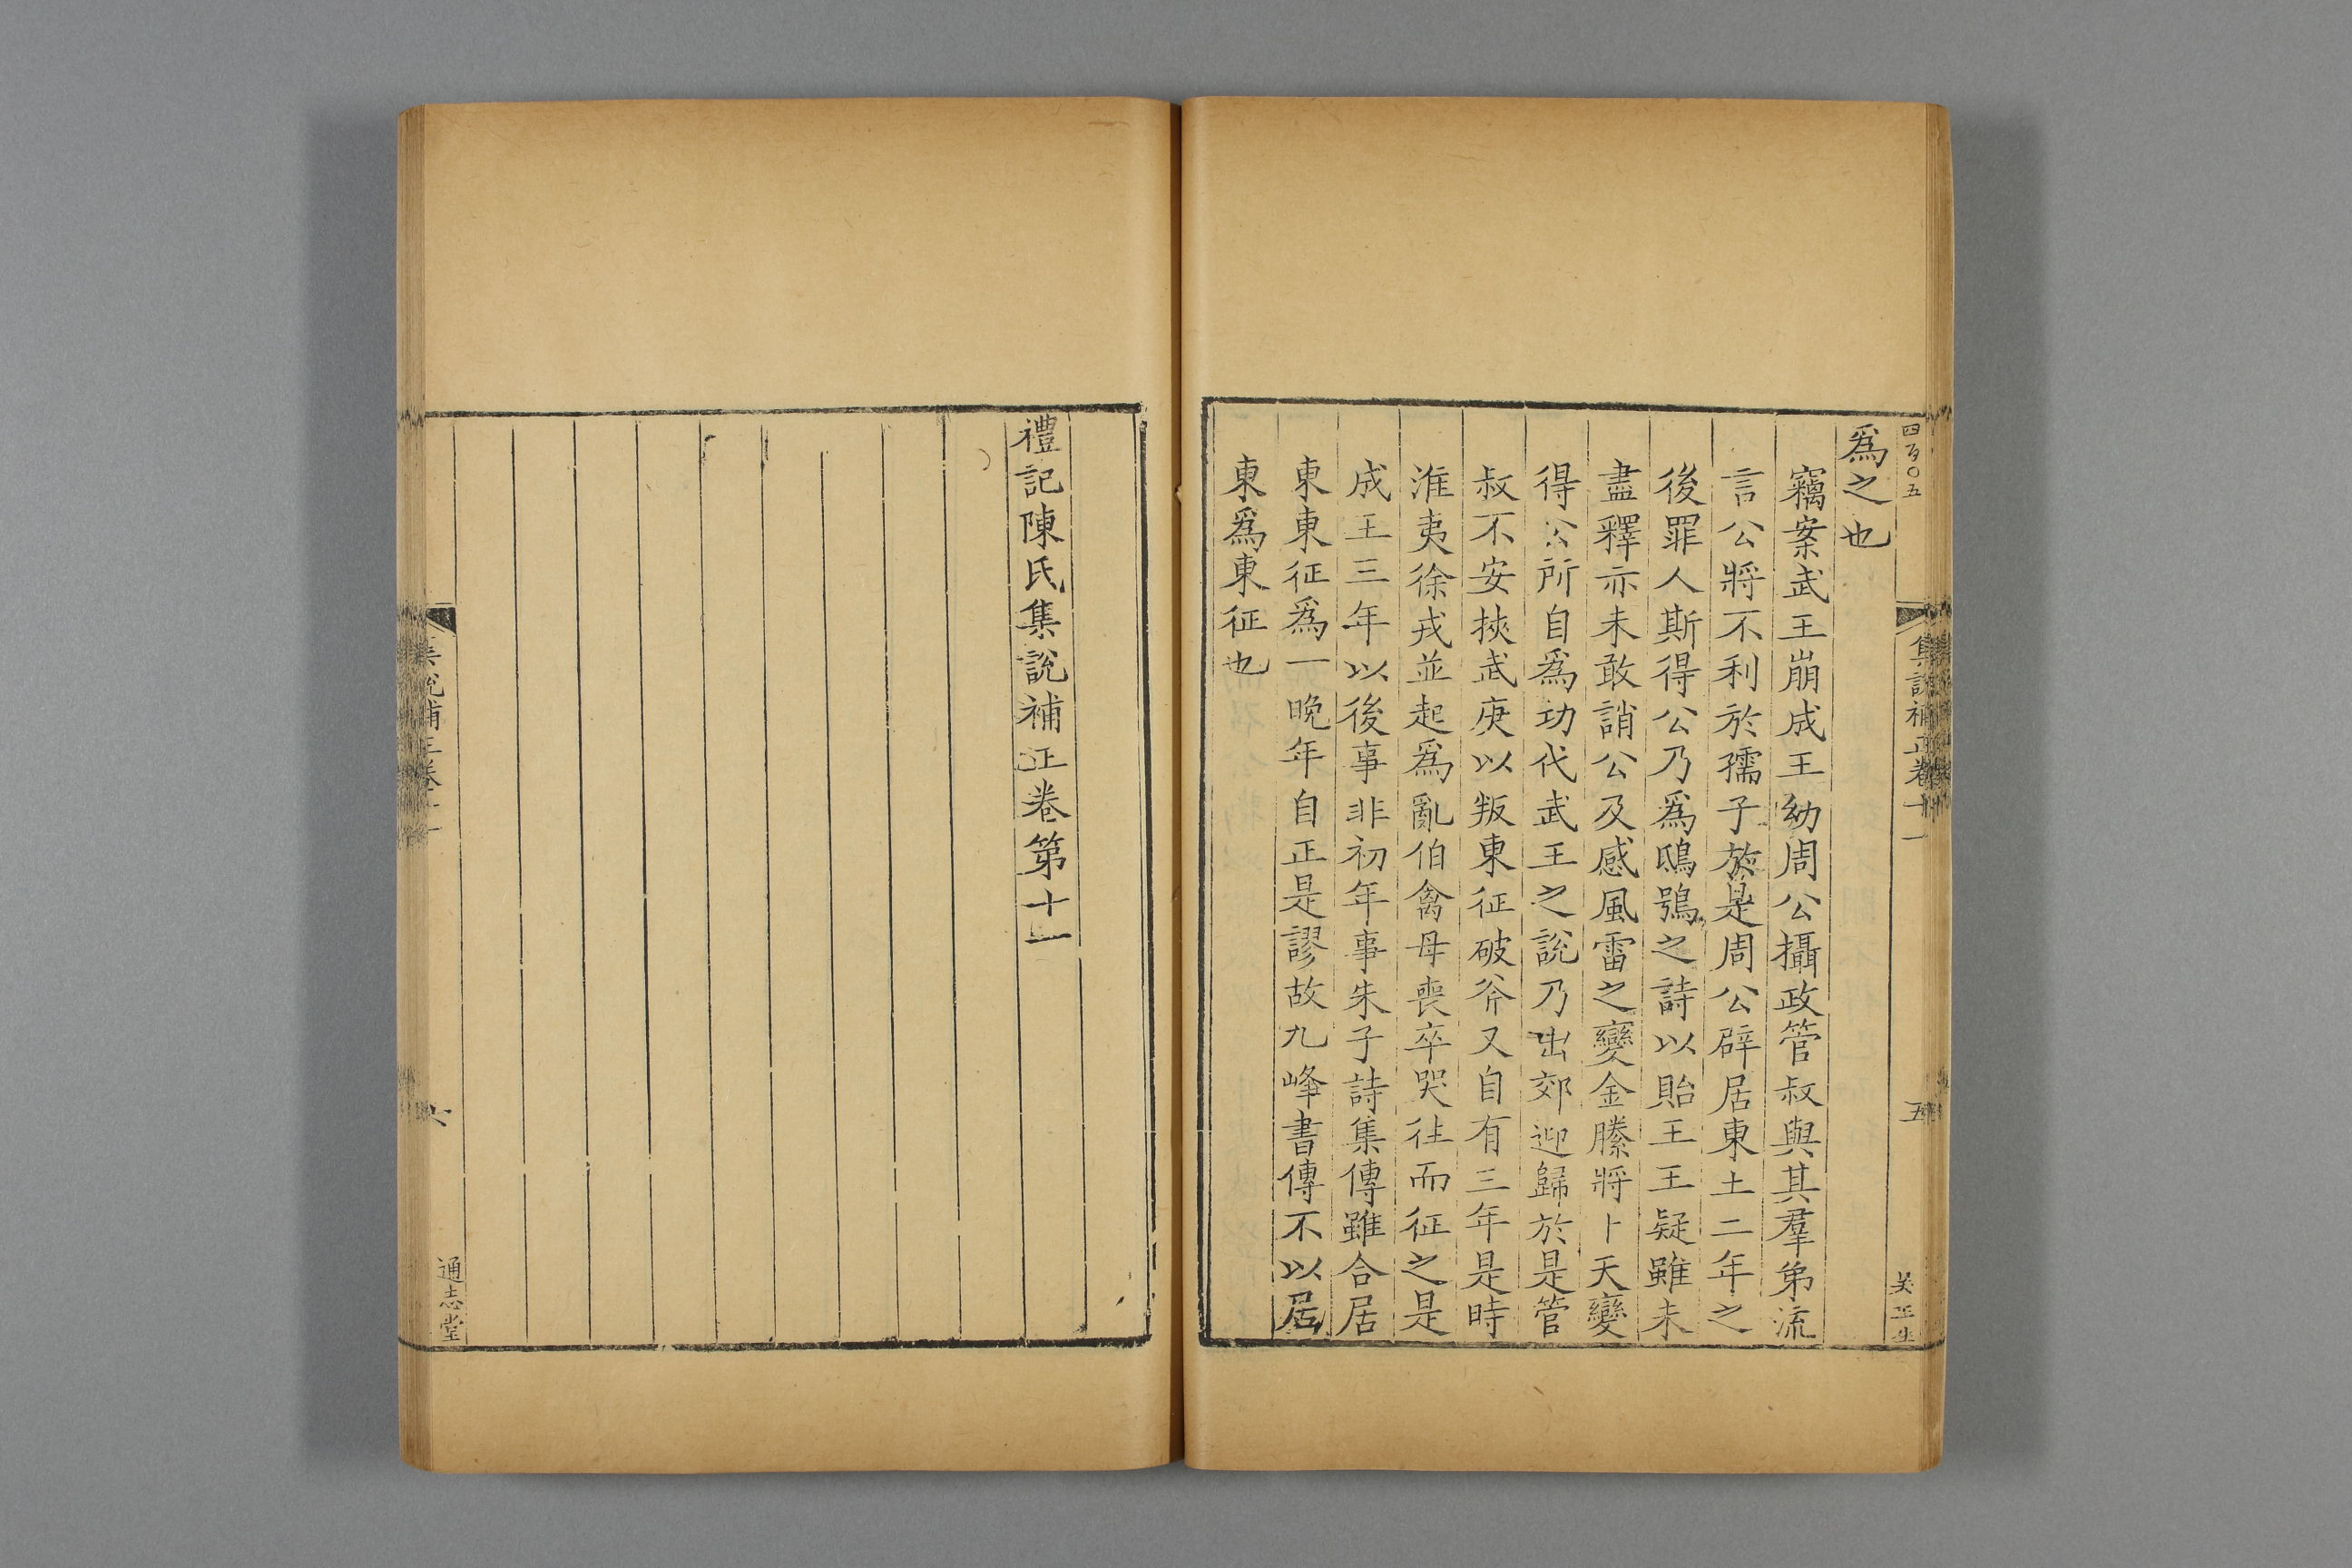 四百〇五
集說補正卷十一
五
爲之也
竊案武王崩成王幼周公攝政管叔與其羣弟流
言公將不利於孺子於是周公辟居東土二年之
後罪人斯得公乃爲鴟鴞之詩以貽王王疑雖未
盡釋亦未敢誚公及感風雷之變金縢將卜天變
得公所自爲功代武王之說乃出郊迎歸於是管
叔不安挾武庚以叛東征破斧又自有三年是時
淮夷徐戎並起爲亂伯禽母喪卒哭徃而征之是
成王三年以後事非初年事朱子詩集傳雖合居
東東征爲一晚年自正是謬故九峰書傳不以居
東爲東征也
禮記陳氏集說補正卷第十一
集說補正卷十一
六
通志堂